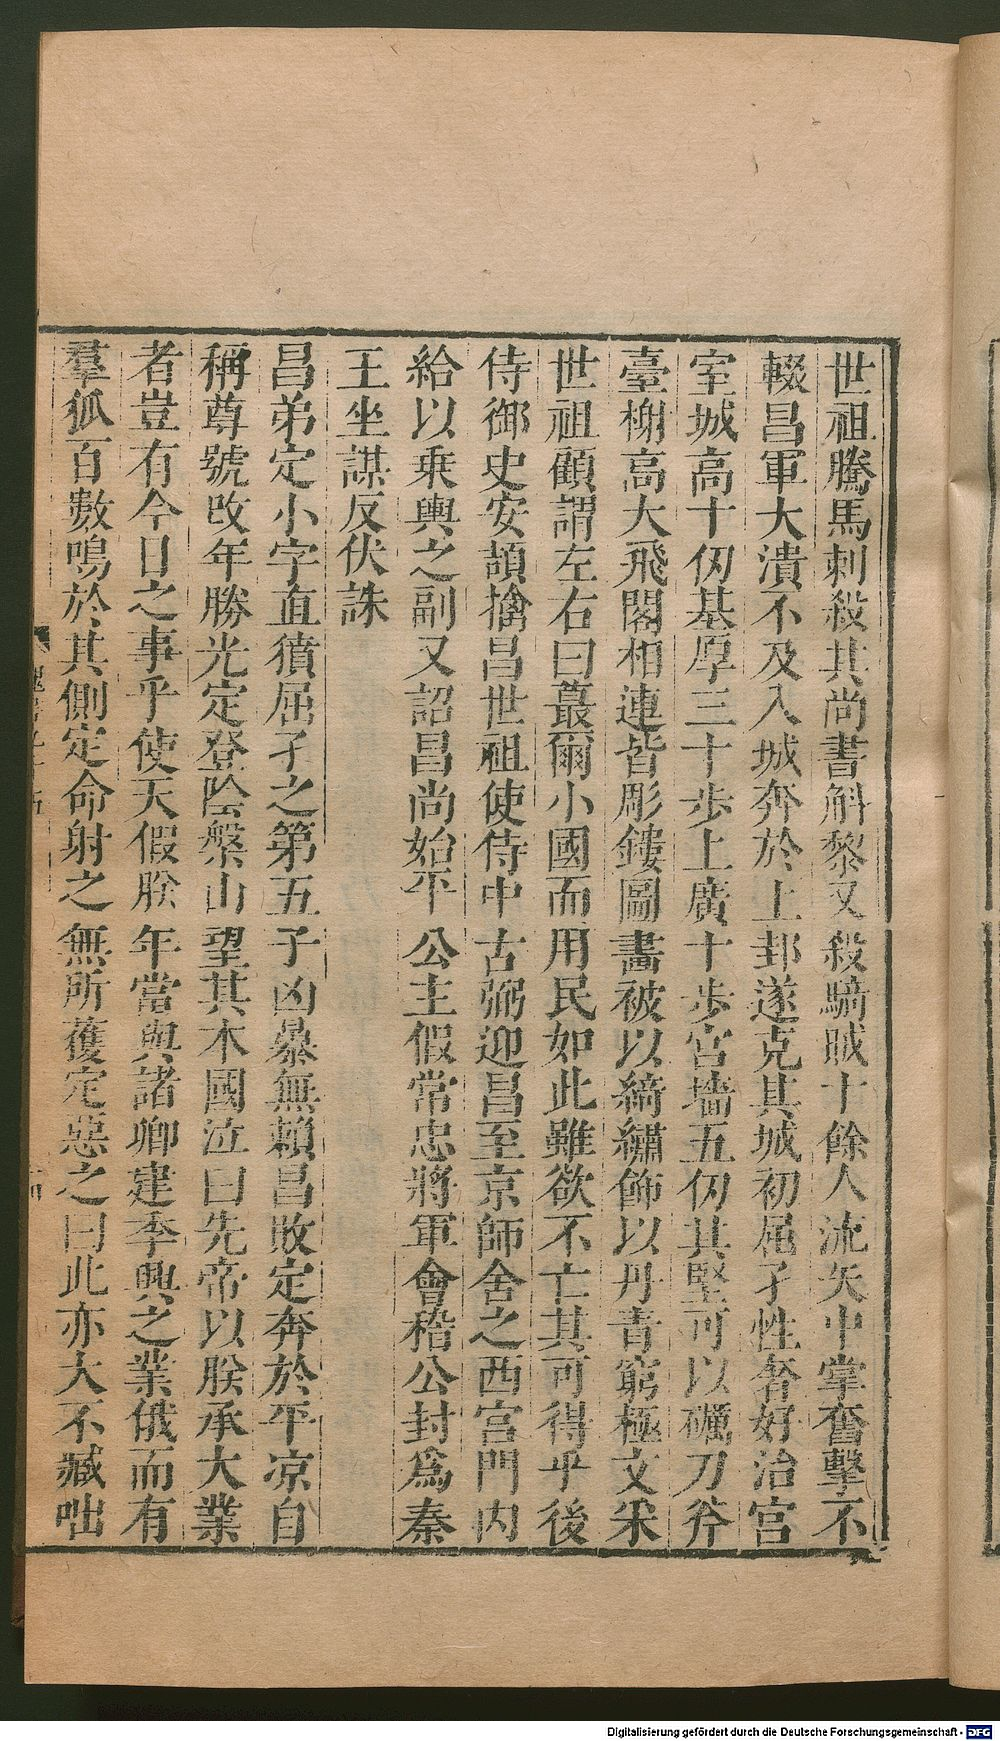 世祖騰馬刺殺其尚書斛黎又殺騎賊十餘人流矢中掌奮擊不
輟昌軍大潰不及入城奔於上邽遂克其城初屈孑性奢好治宮
室城高十仞基厚三十步上廣十步宮墻五仞其堅可以礪刀斧
臺榭高大飛閣相連皆彫鏤圖畫被以綺繡飾以丹青窮極文采
世祖顧謂左右曰蕞爾小國而用民如此雖欲不亡其可得乎後
侍御史安頡擒昌世祖使侍中古弼迎昌至京師舍之西宮門內
給以乗輿之副又詔昌尚始平公主假常忠將軍會稽公封爲秦
王坐謀反伏誅
昌弟定小字直獖屈孑之第五子凶暴無賴昌敗定奔於平凉自
稱尊號改年勝光定登陰槃山望其木國泣曰先帝以朕承大業
者豈有今日之事乎使天假朕年當與諸卿建季興之業俄而有
羣狐百數鳴於其側定命射之無所獲定惡之曰此亦大不臧咄
Digitalisierung gefördert durch die Deutsche Forschungsgemeinschaft - DFG